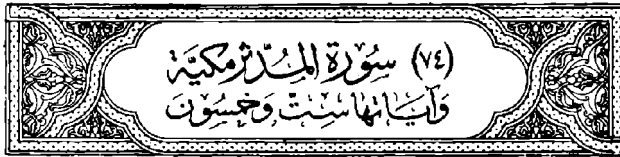 (٧٤) سُورَة المُدَّثِّر مَكِيَّة
وَآيَاتهَا سِتّ وَخَمْسُونَ